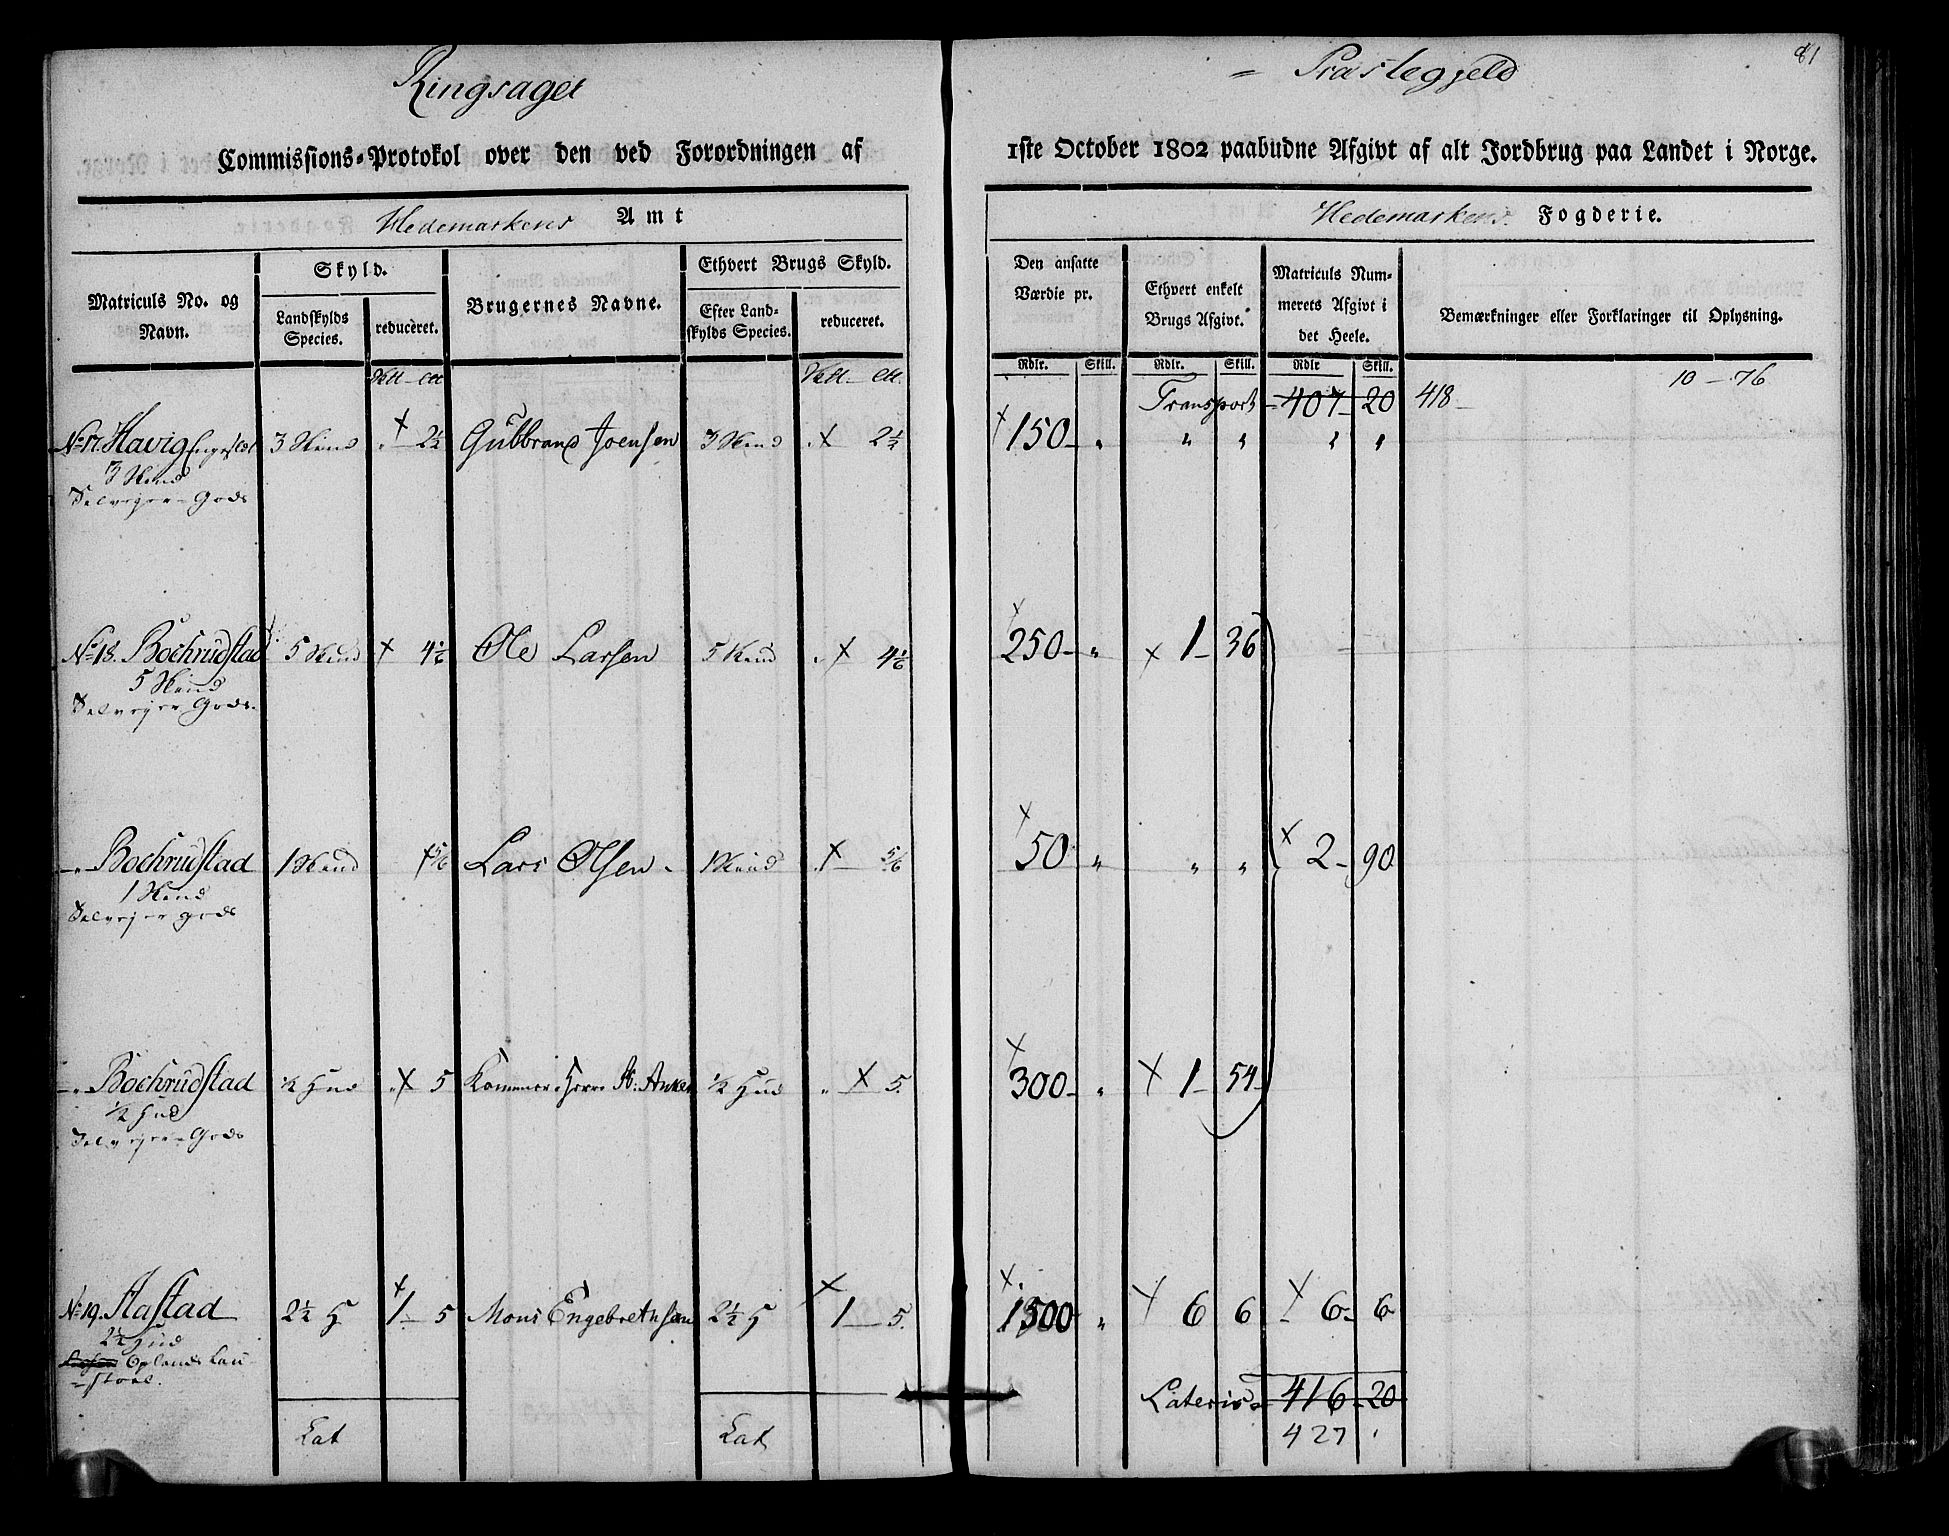 Ringsaget = Præstegjeld 81
Commissions-Protokol over den ved Forordningen af 1ste October 1802 paabudne Afgivt af alt Jordbrug paa Landet i Norge.
Hedemarkens Amt Hedemarkens Fogderie.
Matriculs No. og Navn. Skyld. Landskylds Species. reduceret. Brugernes Navne. Ethvert Brugs Skyld. Efter Landskylds Species. reduceret. Den ansatte Værdie pr. Ethvert enkelt Brugs Afgivt. Matriculs Nummerets Afgivt i det Heele. Bemærkninger eller Forklaringer til Oplysning.
Rdlr. Skill. Rdlr. Skill. Rdlr Skill.
Transport 407 20 418 10 - 76
No 17. Havig 3 Skind 2½ Gulbrand Joensen 3 Skind 2½ 150 „ „ „ „ „
3 Skind
Selvejer Gods
No 18. Bochrudstad 5 Skind 4⅙ Ole Larsen 5 Skind 4⅙ 250 „ 1 36
5 Skind
Selvejer Gods.
Bochrudstad 1 Skind 5/6 Lars Olsen 1 Skind 5/6 50 „ „ „ 2 90
1 Skind
Selvejer gods
Bochrudstad ½ Hud 5 Kammer Herre Anker ½ Hud 5. 300 „ 1 54
½ Hud
Selvejer Gods
No 19. Stastad 2½ H 1 5 Mons Engebrethsen 2½ H 1 5. 1500 „ 6 6 6 6
2½ Hud
Oplands Lau-
=stoel.
Lat Lat Lateris 416 20
427